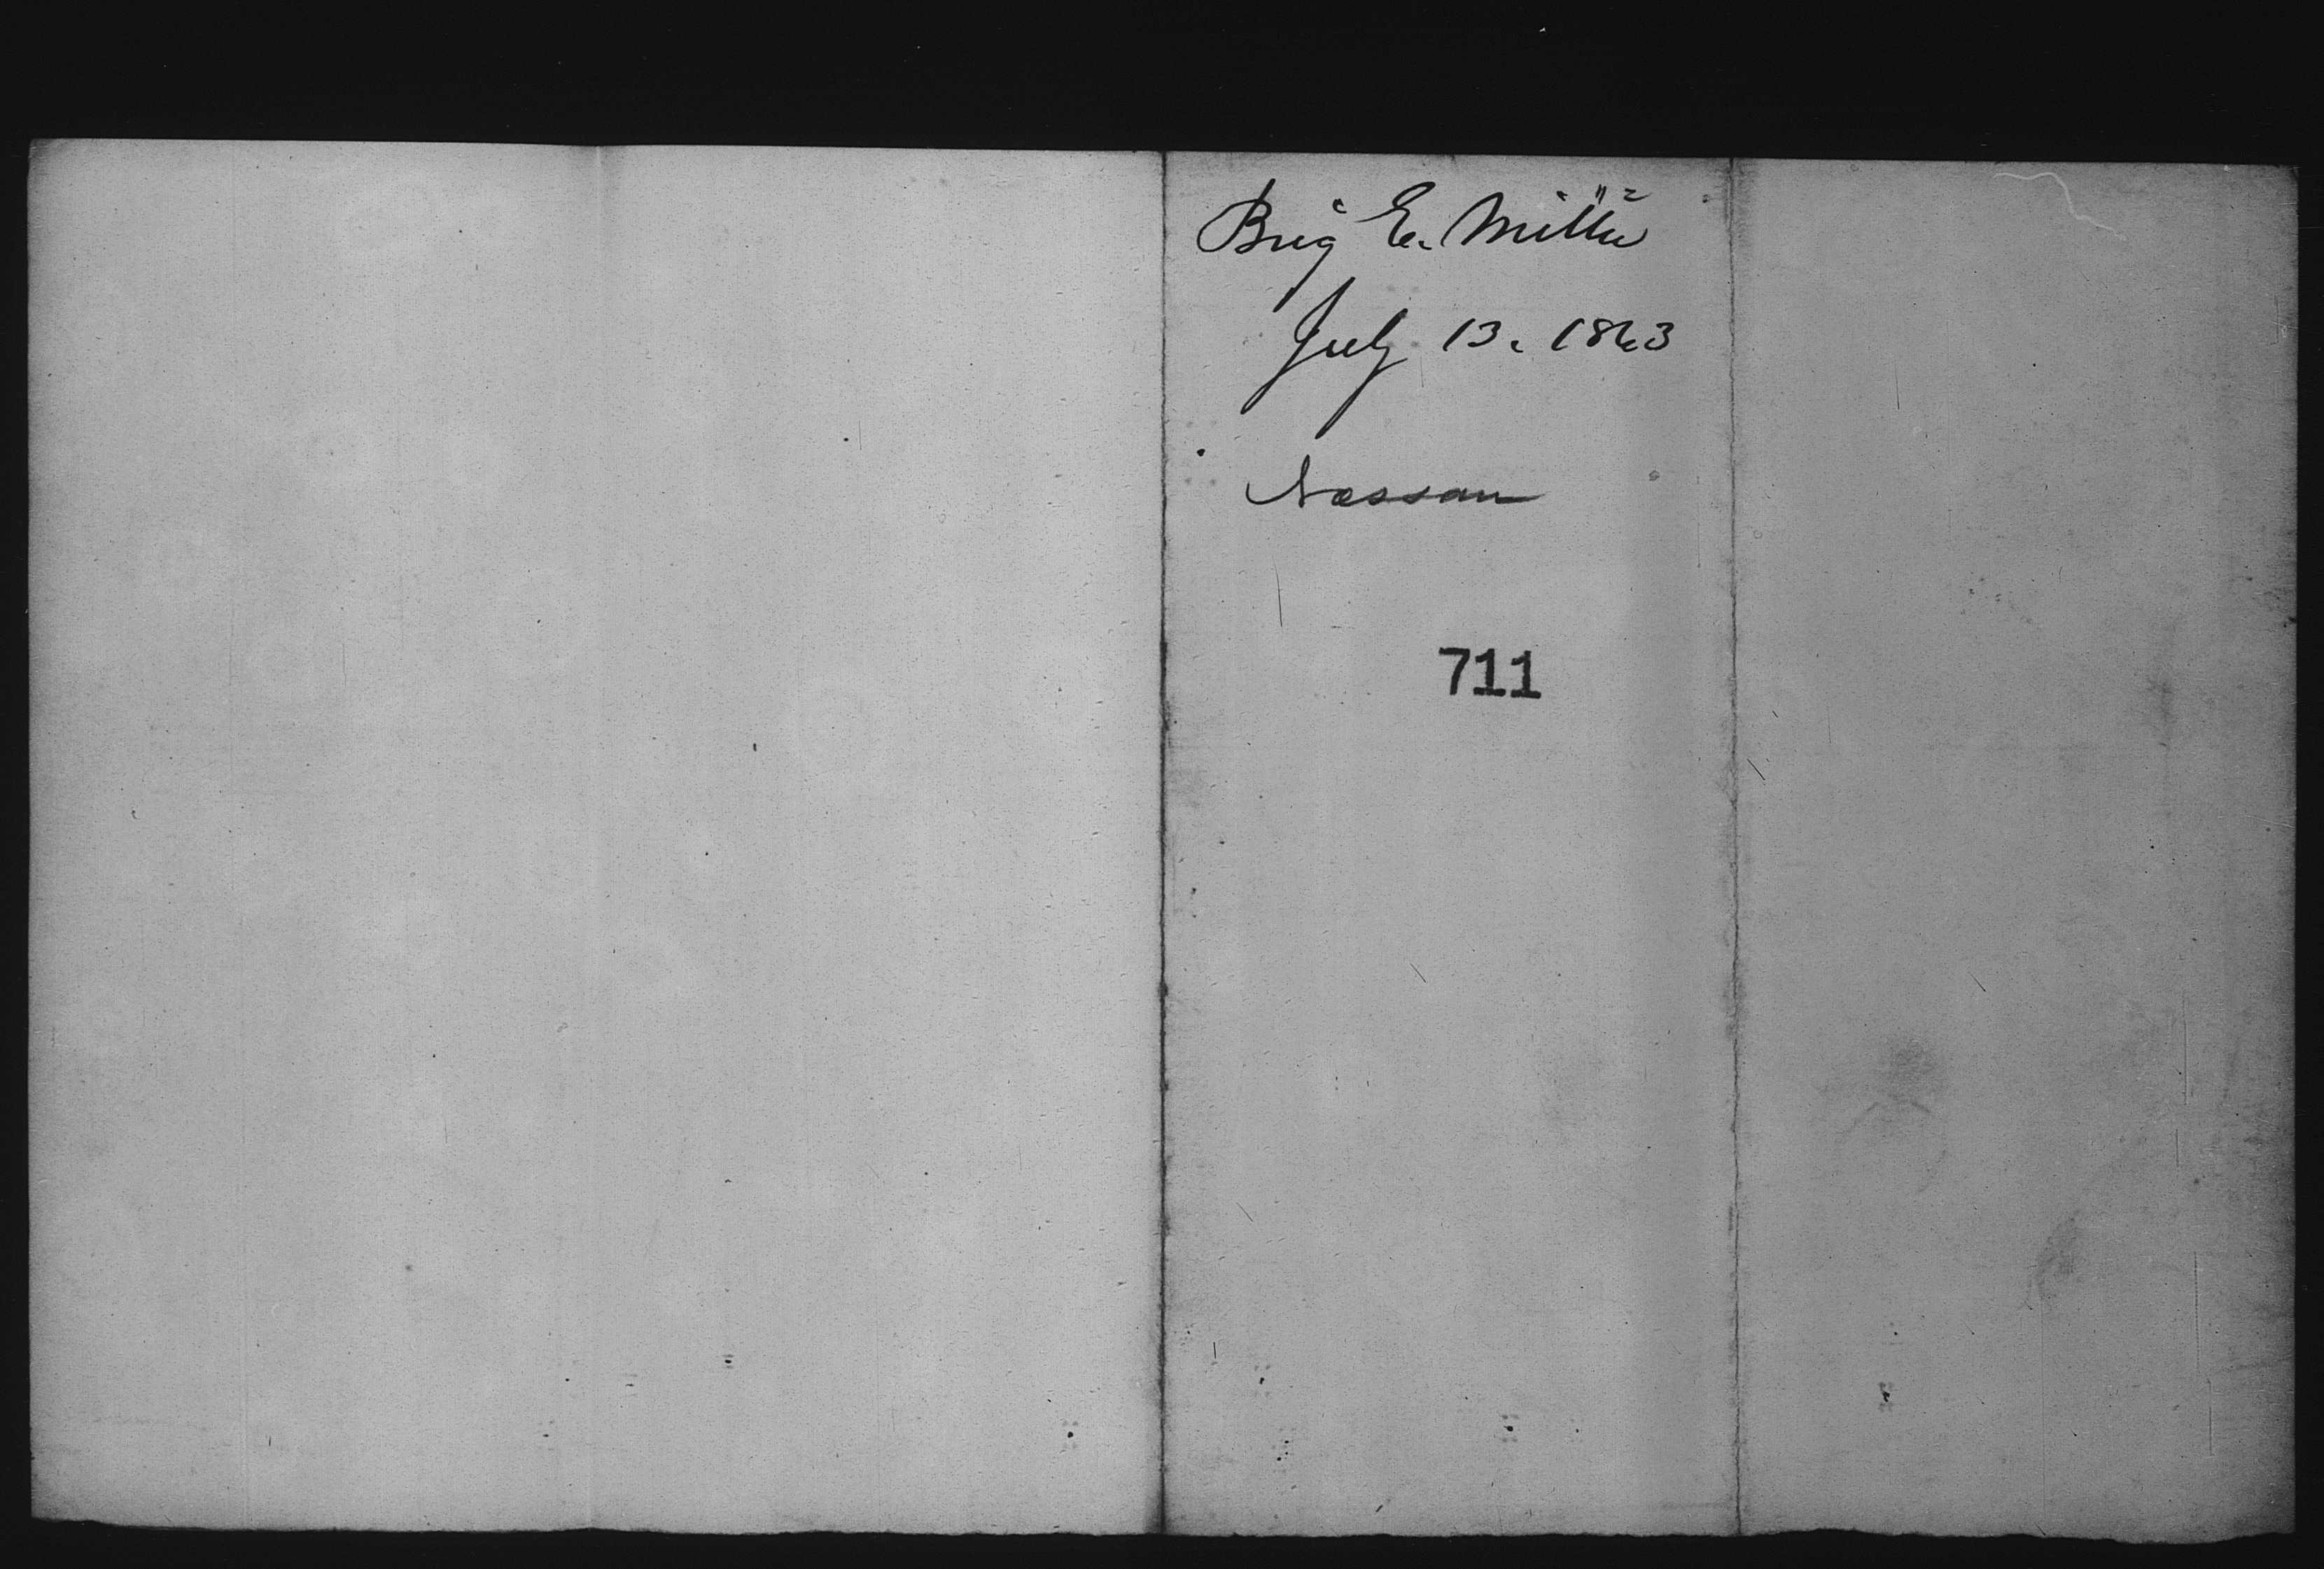 Brig E. Miller
July 13. 1863
Nassau
711